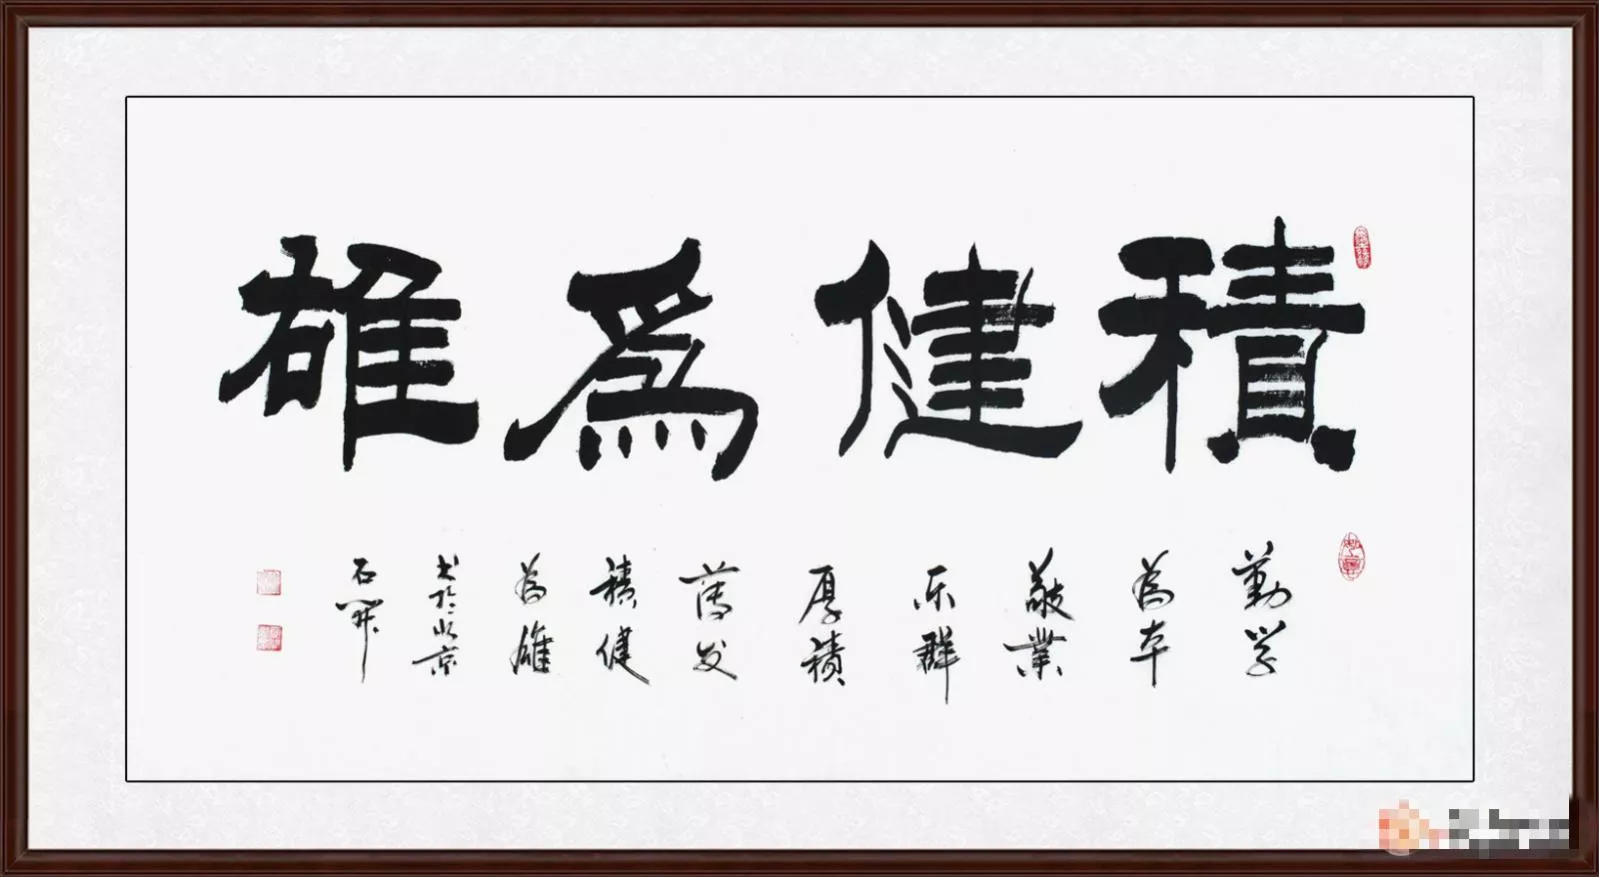 積健爲雄
勤学
為本
敬業
乐群
厚積
薄发
積健
為雄
书於北京
石開